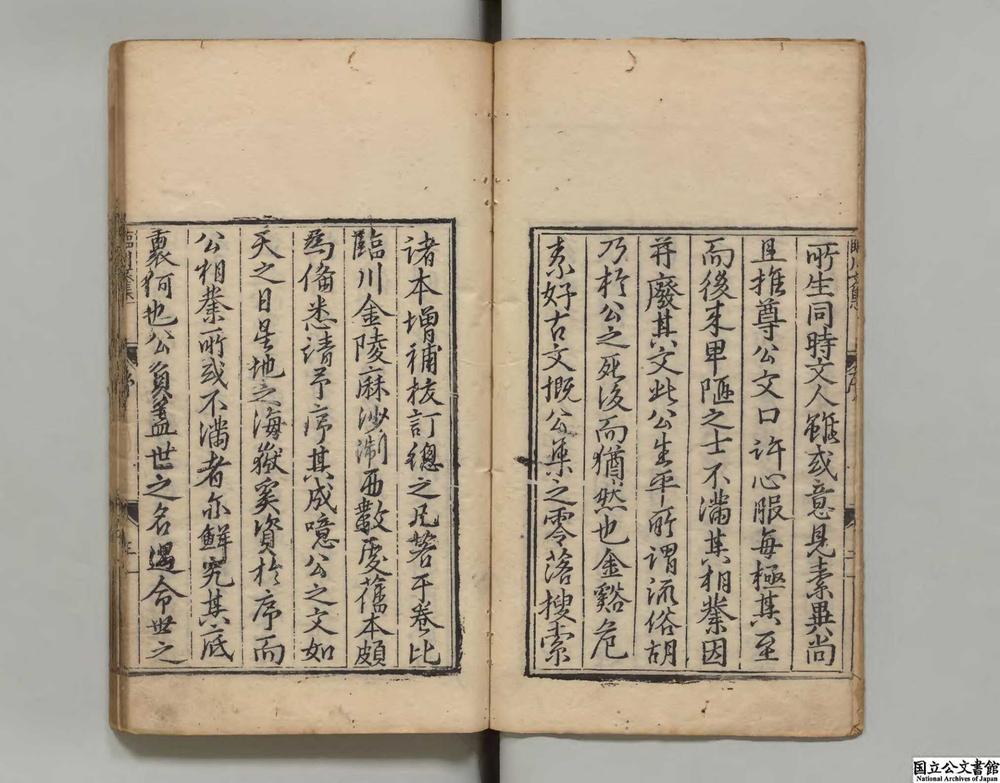 所生同時文人雖或意見素異尚
且推尊公文口許心服每極其至
而後来卑陋之士不滿其相業因
并廢其文此公生平所謂流俗胡
乃於公之死後而猶然也金谿危
素好古文慨公集之零落搜索
諸本增補校訂總之凡若干卷比
臨川金陵麻沙浙西數處舊本頗
為俻悉請予序其成噫公之文如
天之日星地之海嶽奚資於序而
公相業所或不滿者亦鮮究其底
裏何也公負蓋世之名遇命世之
國立公文書館
National Archives of Japan